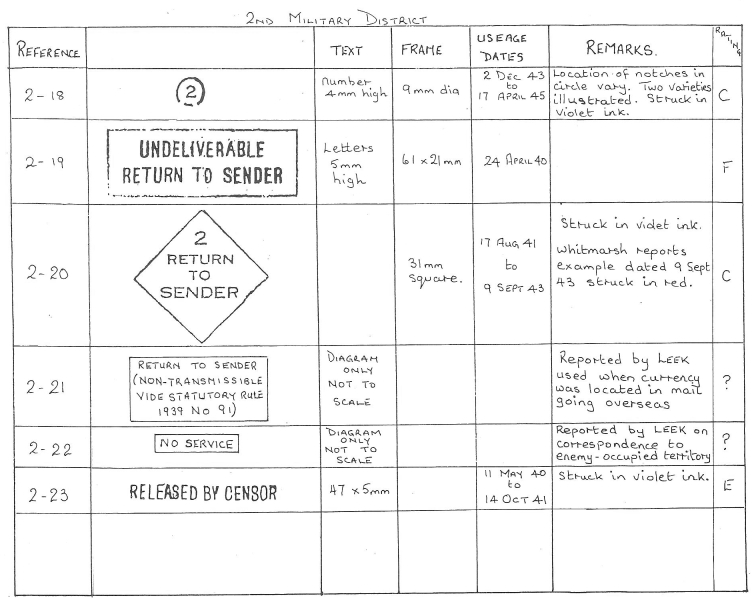 2ND MILITARY DISTRICT
REFERENCE TEXT FRAME USEAGE DATES REMARKS. RATING
2-18
2
number
4mm high
9mm dia
2 DEC 43
to
17 APRIL 45
Location of notches in
circle vary. Two varieties
illustrated. Struck in
violet ink.
C
2-19
UNDELIVERABLE
RETURN TO SENDER
Letters
5mm
high
61 x 21mm
24 APRIL 40
F
2-20
2
RETURN
TO
SENDER
31mm
square.
17 AUG 41
to
9 SEPT 43
Struck in violet ink.
Whitmarsh reports
example dated 9 Sept
43 struck in red.
C
2-21
RETURN TO SENDER
(NON-TRANSMISSIBLE
VIDE STATUTORY RULE
1939 NO 91)
DIAGRAM
ONLY
NOT TO
SCALE
Reported by LEEK
used when currency
was located in mail
going overseas
?
2-22
NO SERVICE
DIAGRAM
ONLY
NOT TO
SCALE
Reported by LEEK on
correspondence to
enemy-occupied territory
?
2-23
RELEASED BY CENSOR
47 x 5mm
11 MAY 40
to
14 OCT 41
Struck in violet ink.
E